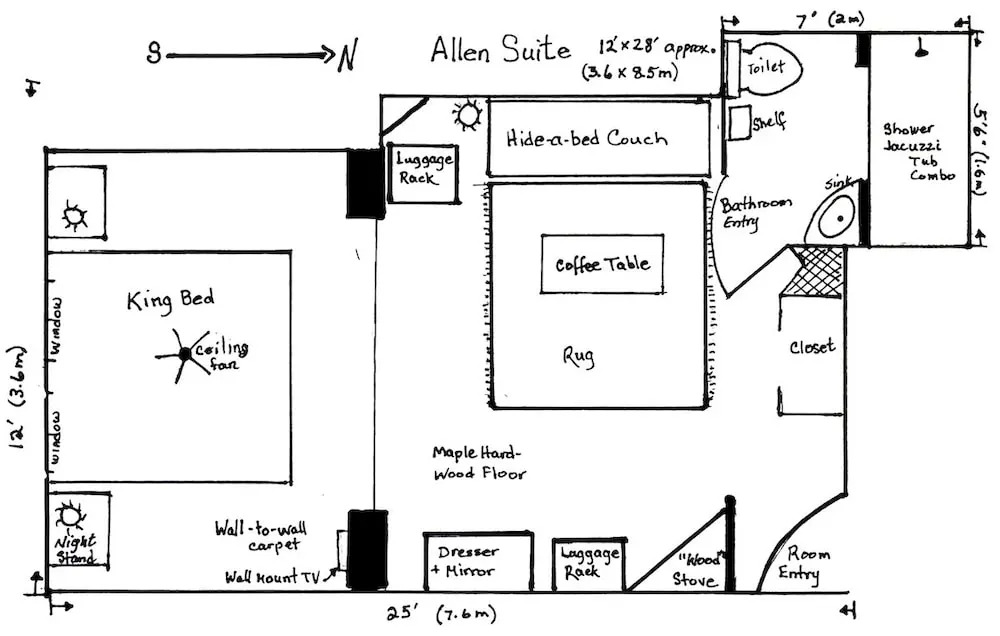 S → N
Allen Suite
12' x 28' approx.
(3.6 x 8.5m)
7' (2m)
Toilet
Shelf
Shower
Jacuzzi
Tub
Combo
5'6" (1.6m)
Sink
Bathroom
Entry
Hide-a-bed Couch
Luggage
Rack
Coffee Table
Rug
Closet
King Bed
Ceiling
fan
Window
Window
12' (3.6m)
Maple Hard-
Wood Floor
Night
Stand
Wall-to-wall
carpet
Wall Mount TV
Dresser
+ Mirror
Luggage
Rack
"Wood"
Stove
Room
Entry
25' (7.6m)